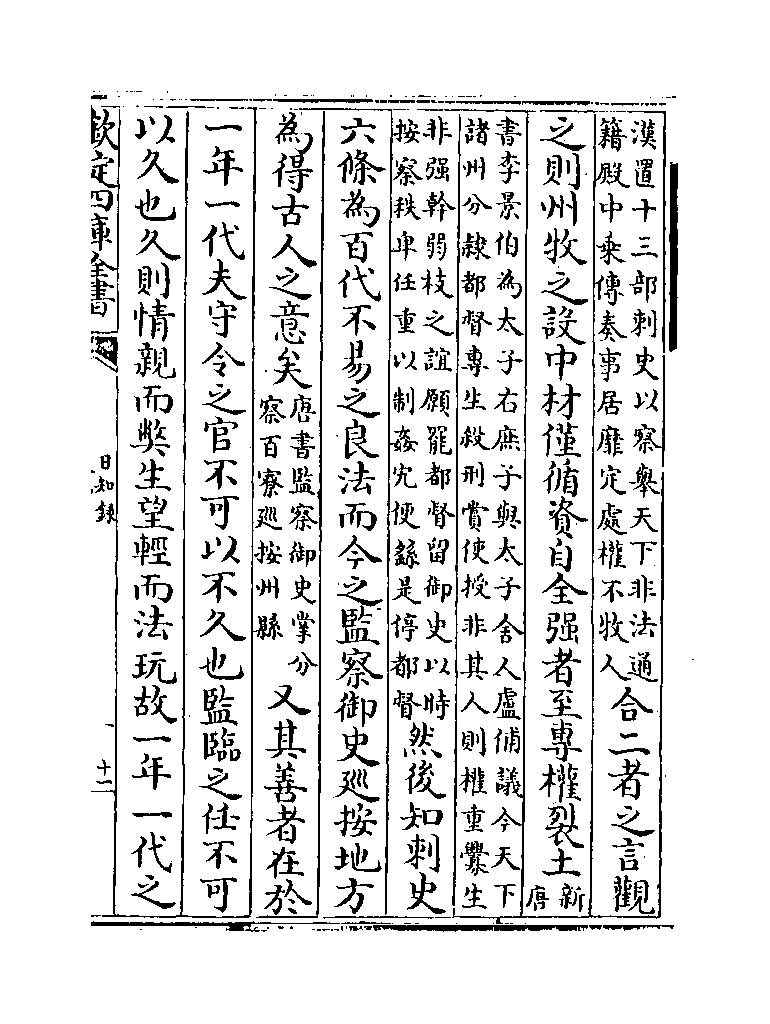 漢置十三部刺史以察舉天下非法通
籍殿中乗傳奏事居靡定處權不牧人
合二者之言觀
之則州牧之設中材僅循資自全强者至專權裂土
新
唐
書李景伯為太子右庶子與太子舍人盧俌議今天下
諸州分隸都督專生殺刑賞使授非其人則權重釁生
非强幹弱枝之誼願罷都督留御史以時
按察秩卑任重以制姦宄便繇是停都督
然後知刺史
六條為百代不易之良法而今之監察御史廵按地方
為得古人之意矣
唐書監察御史掌分
察百寮廵按州縣
又其善者在於
一年一代夫守令之官不可以不久也監臨之任不可
以久也久則情親而弊生望輕而法玩故一年一代之
欽定四庫全書
日知錄
十一